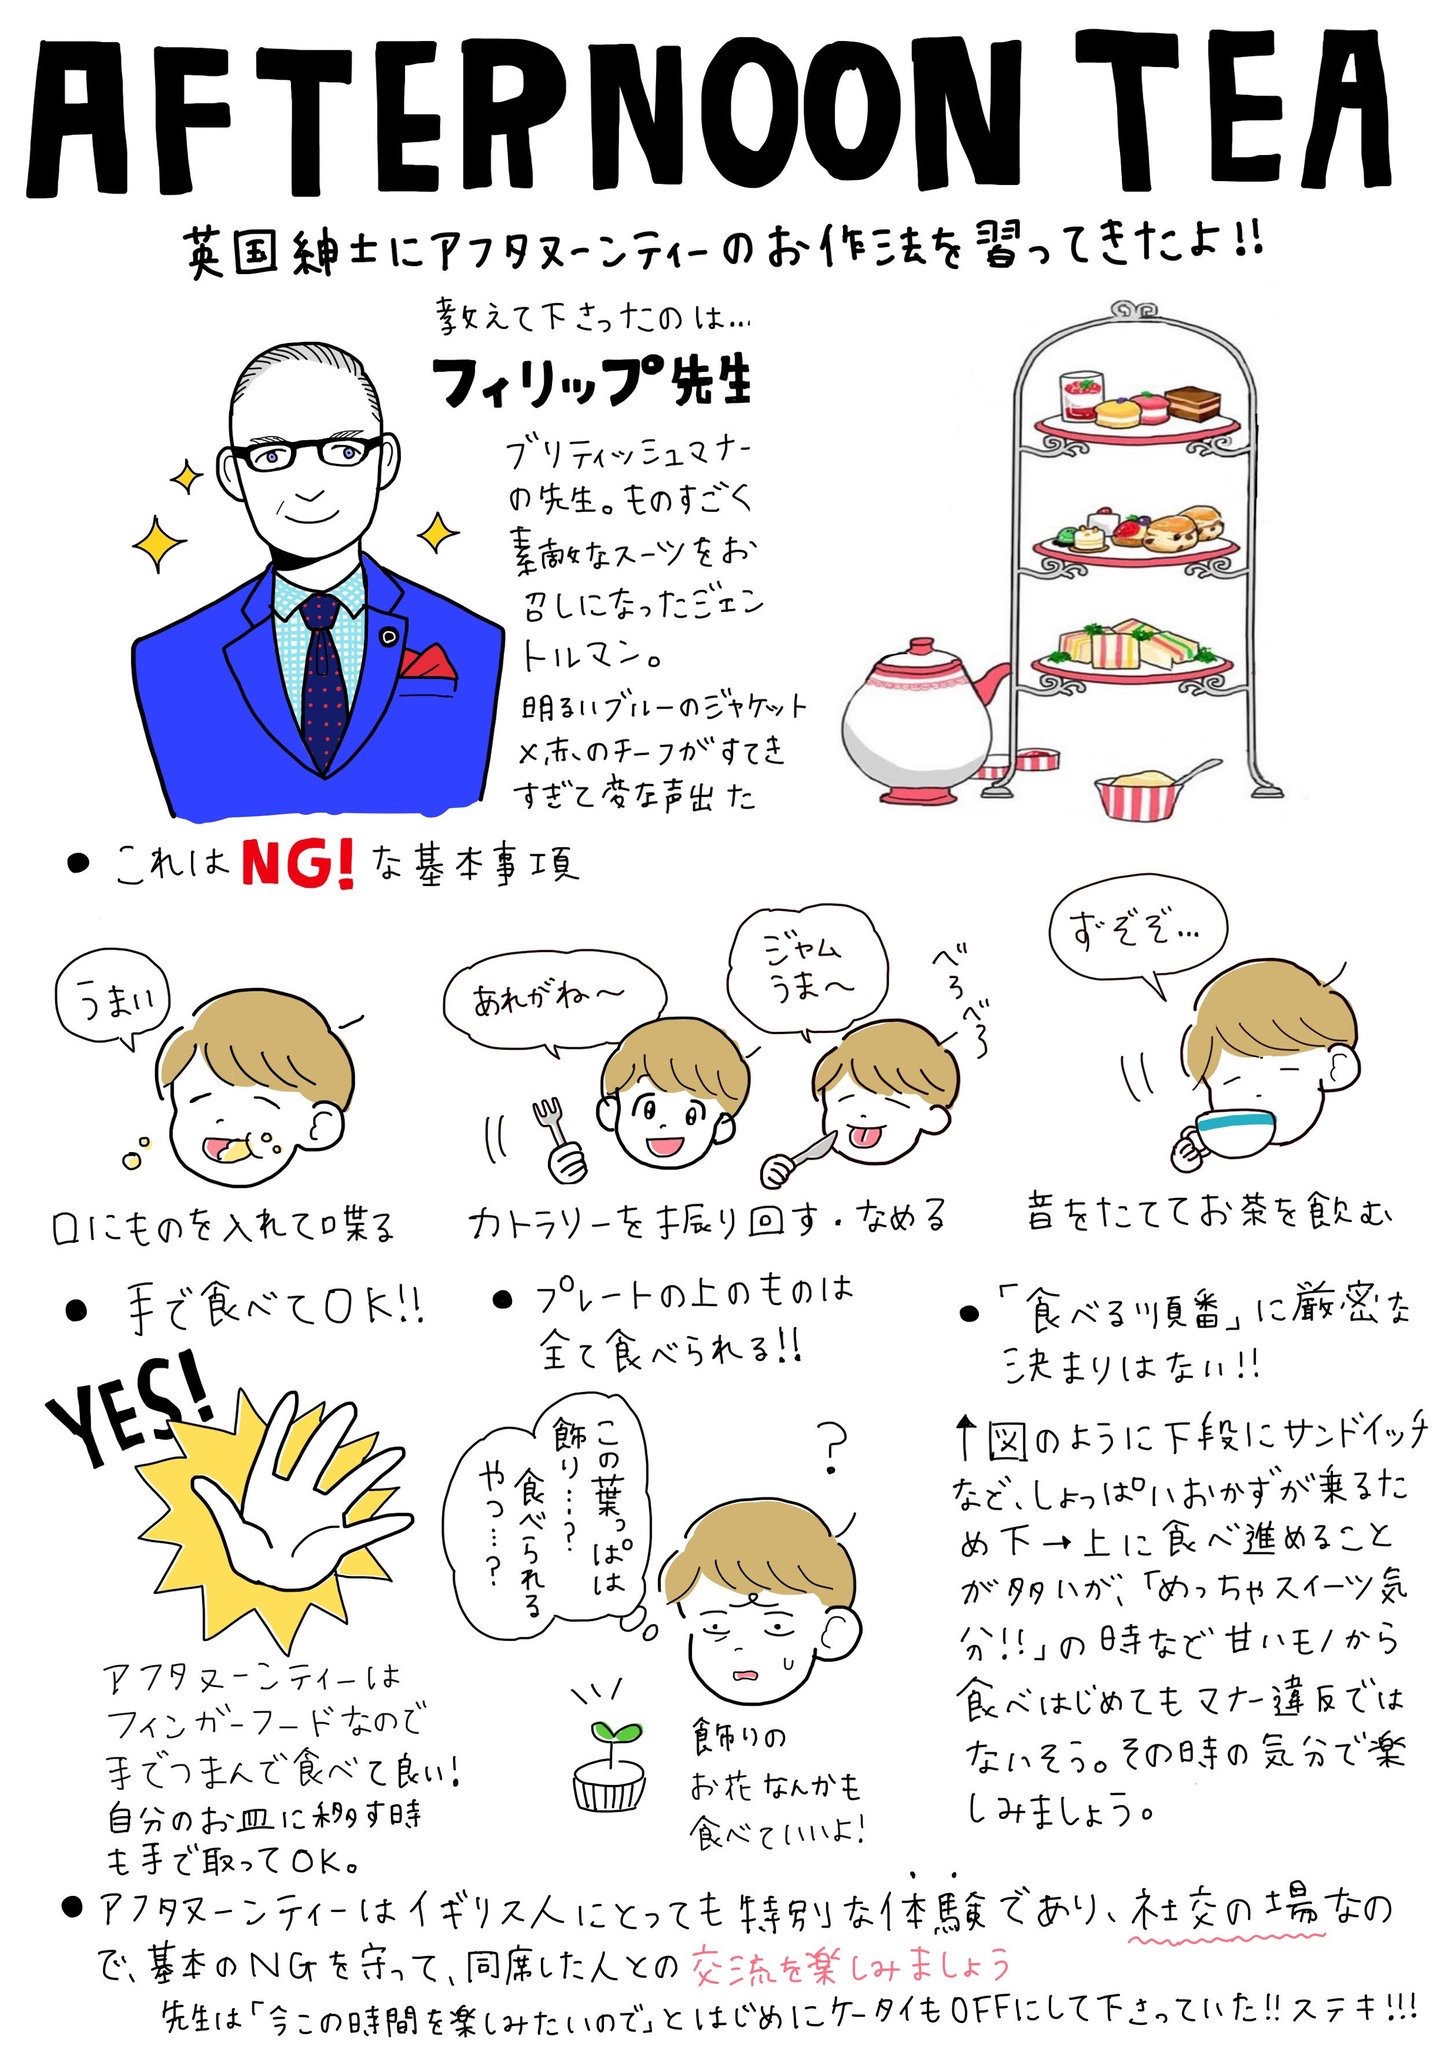 AFTERNOON TEA
英国紳士にアフタヌーンティーのお作法を習ってきたよ!!
教えて下さったのは…
フィリップ先生
ブリティッシュマナー
の先生。ものすごく
素敵なスーツをお
召しになったジェン
トルマン。
明るいブルーのジャケット
×赤のチーフがすてき
すぎて変な声出た
● これは NG! な基本事項
うまい
口にものを入れて喋る
あれがね〜
ジャム
うま〜
べろべろ
カトラリーを振り回す・なめる
ずぞぞ…
音をたててお茶を飲む
● 手で食べてOK!!
YES!
アフタヌーンティーは
フィンガーフードなので
手でつまんで食べて良い!
自分のお皿に移す時
も手で取ってOK。
● プレートの上のものは
全て食べられる!!
この葉っぱは
飾り…?
食べられる
やつ…?
?
飾りの
お花なんかも
食べていいよ!
● 「食べる順番」に厳密な
決まりはない!!
↑図のように下段にサンドイッチ
など、しょっぱいおかずが乗るた
め下→上に食べ進めること
が多いが、「めっちゃスイーツ気
分!!」の時など甘いモノから
食べはじめてもマナー違反では
ないそう。その時の気分で楽
しみましょう。
● アフタヌーンティーはイギリス人にとっても特別な体験であり、社交の場なの
で、基本のNGを守って、同席した人との交流を楽しみましょう
先生は「今この時間を楽しみたいので」とはじめにケータイもOFFにして下さっていた!!ステキ!!!